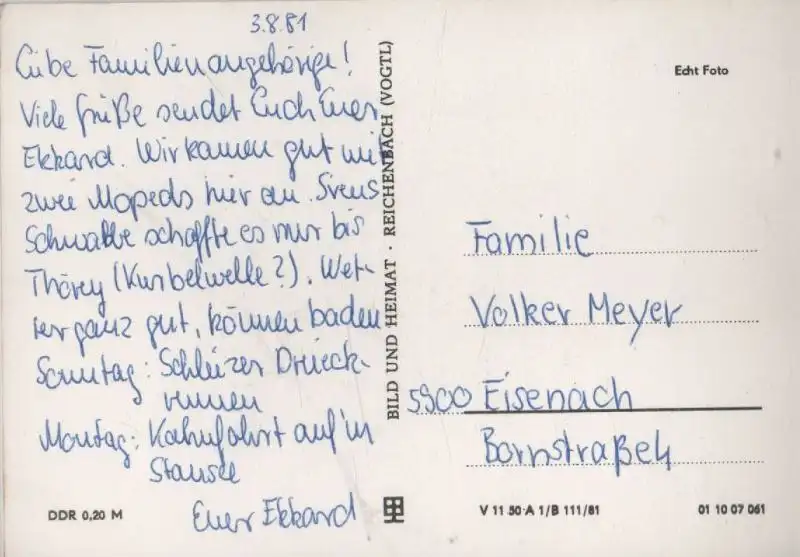 3.8.81
Liebe Familienangehörige!
Viele Grüße sendet Euch Euer
Ekkard. Wir kamen gut mit
zwei Mopeds hier an. Svens
Schwalbe schaffte es nur bis
Thörey (Kurbelwelle?). Wet-
ter ganz gut, können baden
Sonntag: Schleizer Dreieck-
rennen
Montag: Kahnfahrt auf'm
Stausee
Euer Ekkard
DDR 0,20 M
BILD UND HEIMAT · REICHENBACH (VOGTL)
Echt Foto
Familie
Volker Meyer
5900 Eisenach
Bornstraße 4
V 11 50 A 1/B 111/81
01 10 07 061